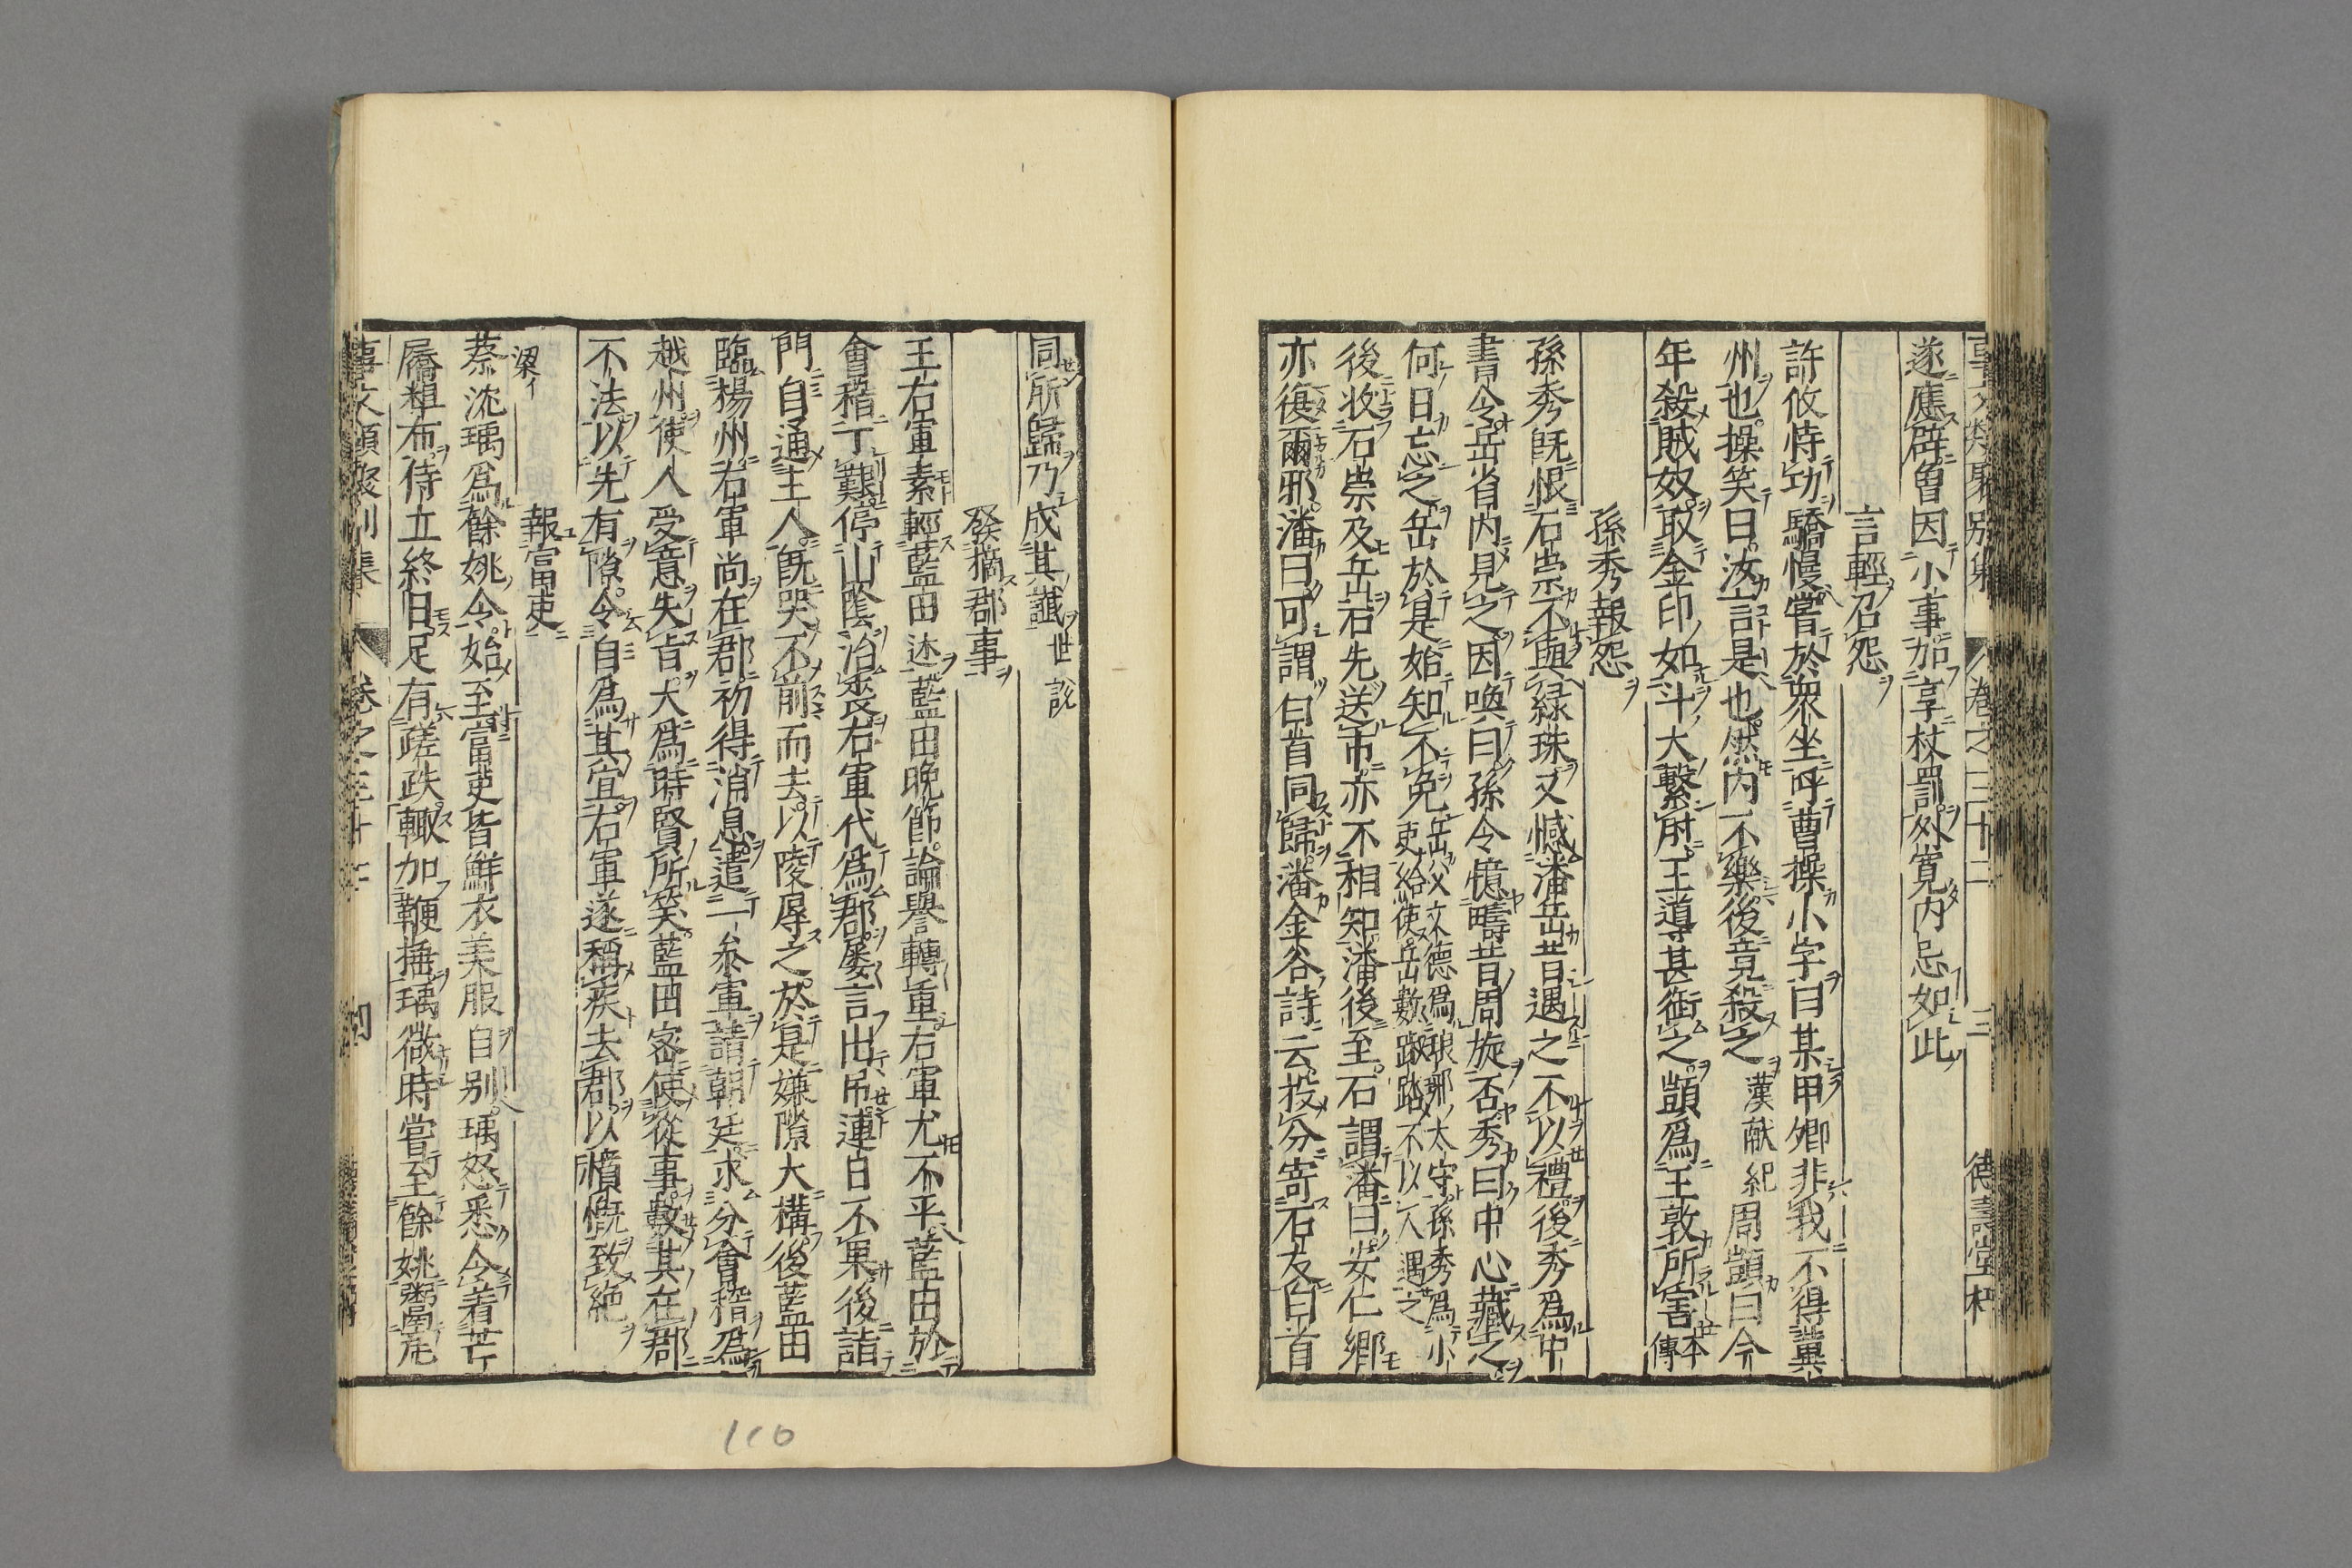 事文類聚別集 卷之三十二 三 德壽堂梓
遂應辟曾因小事加享杖罰外寛内忌如此
言輕召怨
許攸恃功驕慢嘗於衆坐呼曹操小字曰某甲卿非我不得冀
州也操笑曰汝言是也然内不樂後竟殺之 漢献紀 周顗曰今
年殺賊奴取金印如斗大繫肘王導甚銜之顗爲王敦所害 本傳
孫秀報怨
孫秀既恨石崇不與緑珠又憾潘岳昔遇之不以禮後秀爲中
書令岳省内見之因喚曰孫令憶疇昔周旋否秀曰中心藏之
何日忘之岳於是始知不免 岳父文德爲琅琊太守孫秀爲小吏給使岳數蹴踏不以人遇之
後收石崇及岳石先送市亦不相知潘後至石謂潘曰安仁鄉
亦復爾邪潘曰可謂白首同歸潘金谷詩云投分寄石友白首
同所歸乃成其讖 世說
發摘郡事
王右軍素輕藍田 述 藍田晚節論譽轉重右軍尤不平藍田於
會稽丁艱停山陰治喪右軍代爲郡屢言出吊連日不果後詣
門自通主人既哭不前而去以陵辱之於是嫌隙大構後藍田
臨楊州右軍尚在郡初得消息遣一參軍詣朝廷求分會稽爲
越州使人受意失旨大爲時賢所笑藍田密使從事數其在郡
不法以先有隙令自爲其宜右軍遂稱疾去郡以憤慨致絶
報富吏
梁
蔡沈瑀爲餘姚令始至富吏皆鮮衣美服自别瑀怒悉令着芒
屩粗布侍立終日足有蹉跌輙加鞭捶瑀微時嘗至餘姚鬻瓦
事文類聚別集 卷之三十二